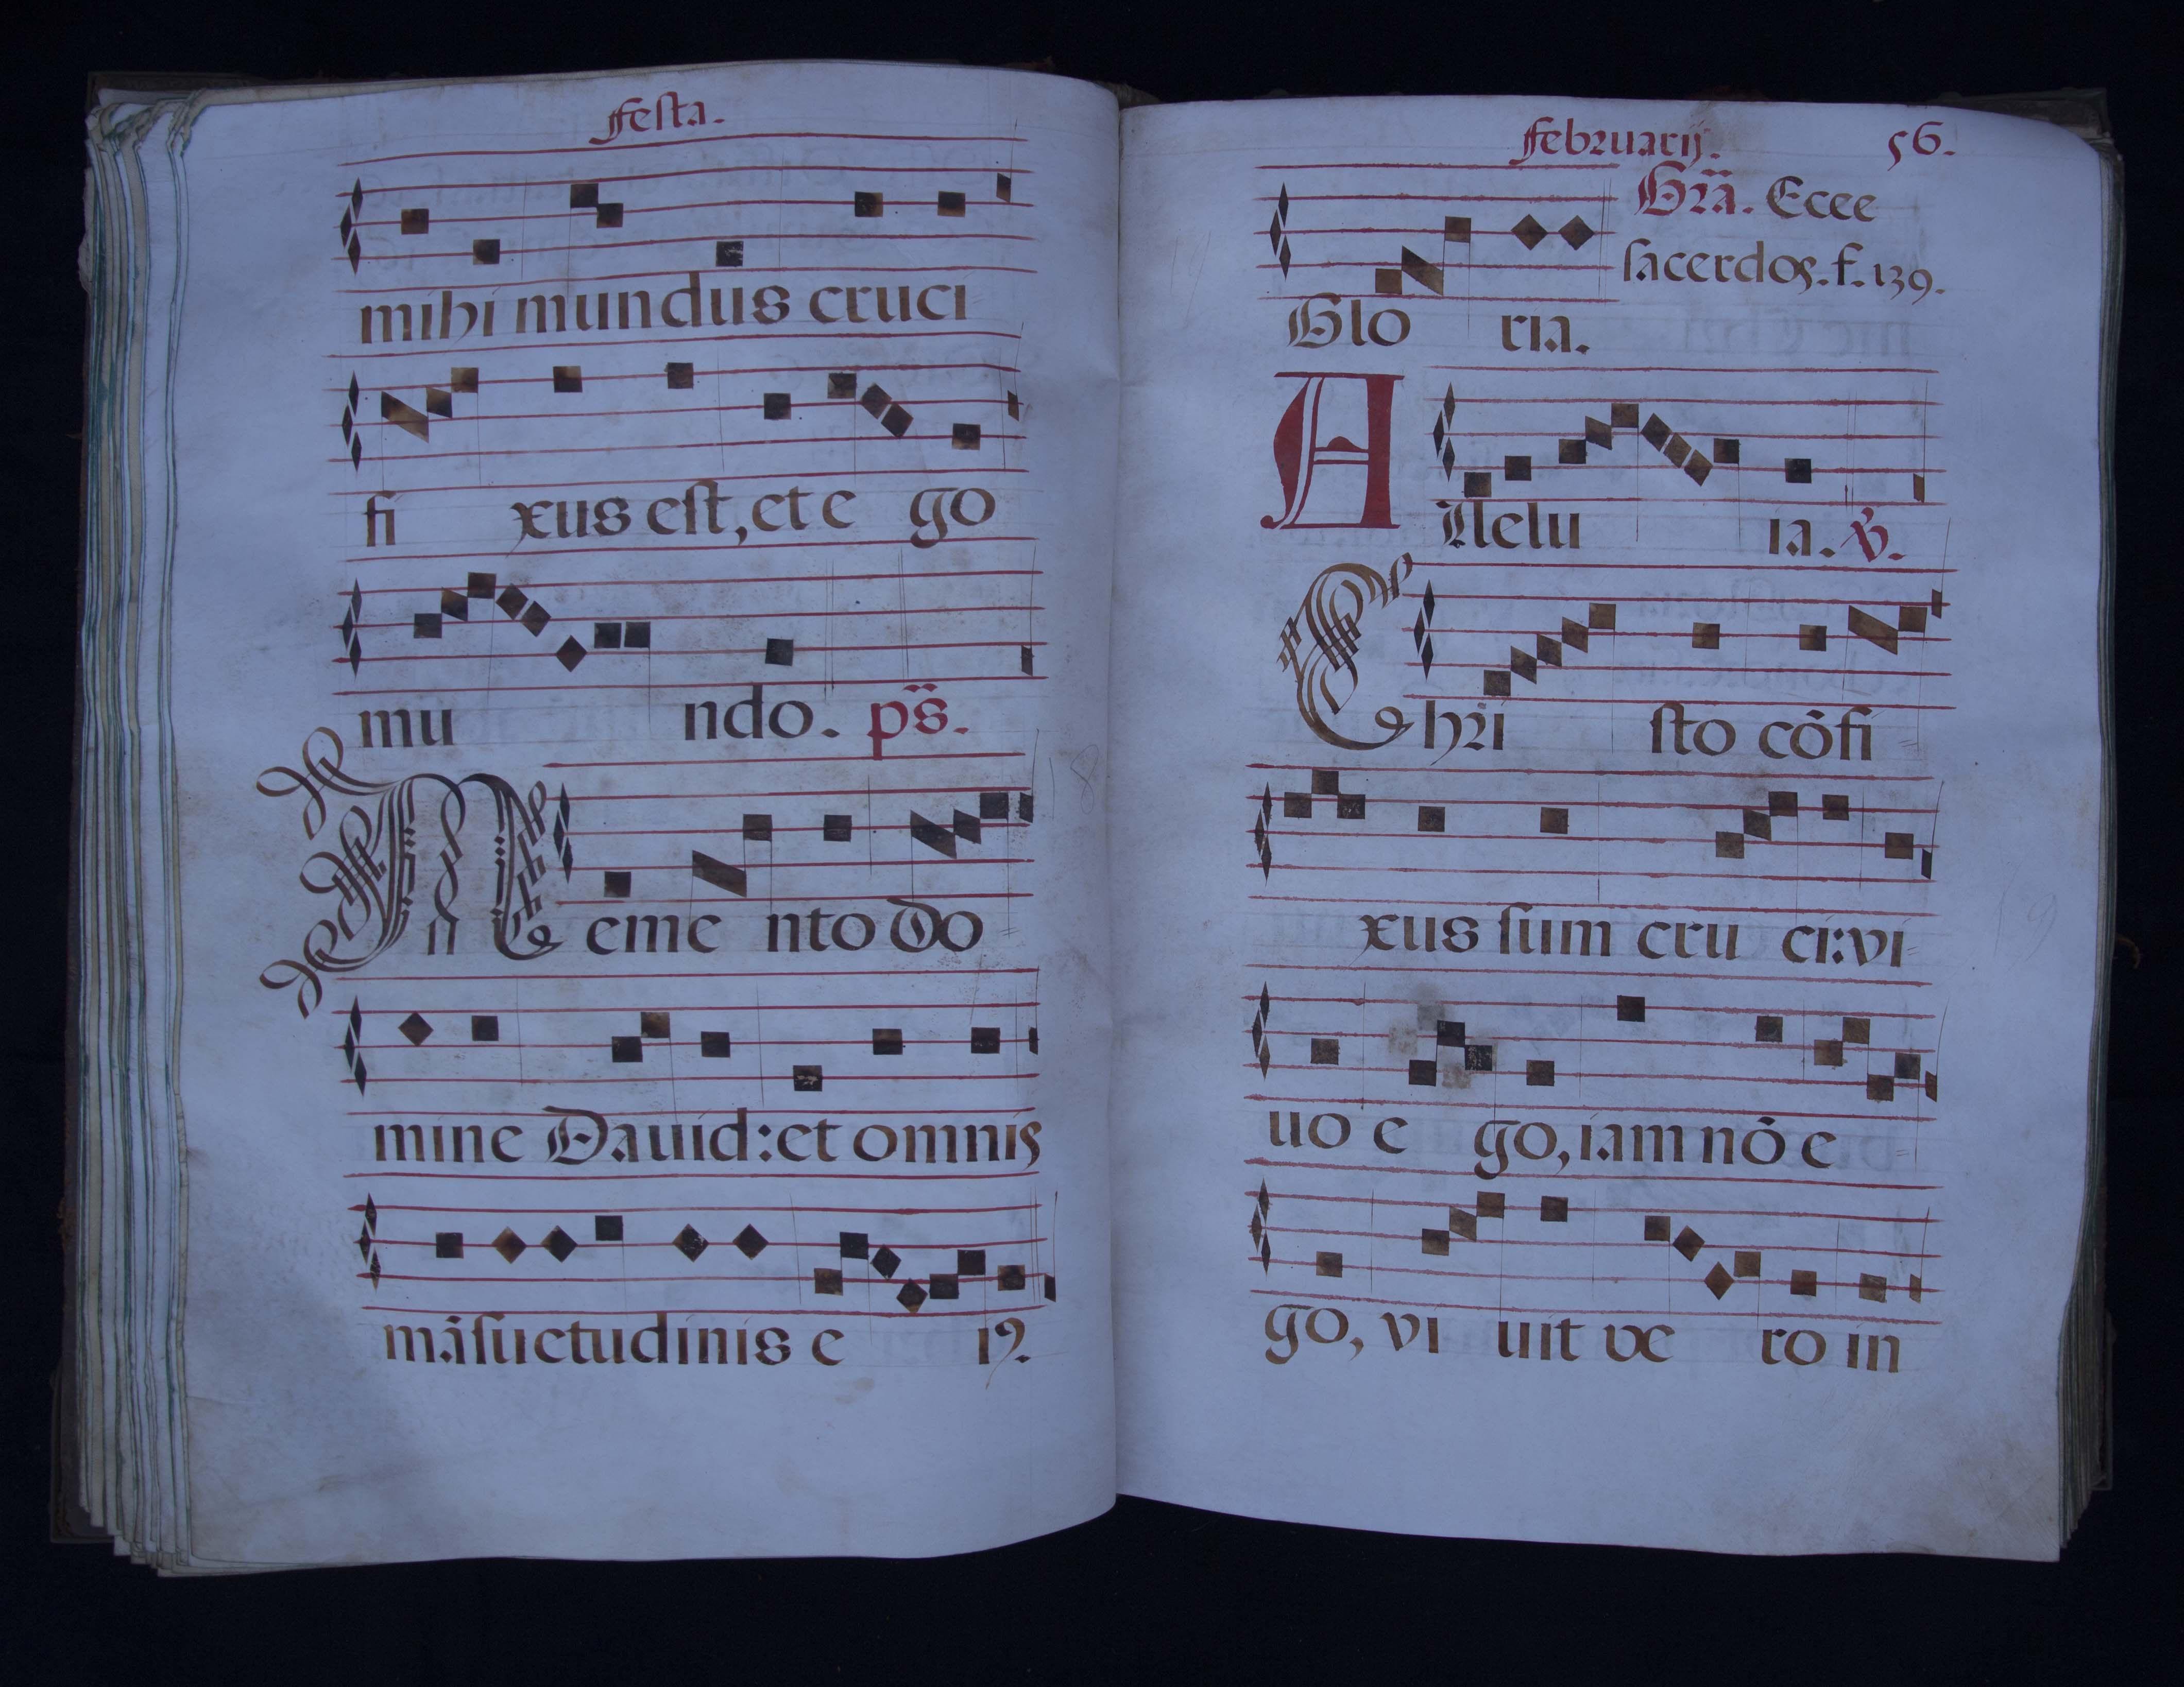 Festa.
mihi mundus cruci
fi xus est, et e go
mu ndo. ps̃.
Meme nto do
mine Dauid: et omnis
mãsuetudinis e iꝰ.
Februarij. 56.
Grã. Ecce
sacerdos. f. 139.
Glo ria.
Allelu ia. ℣.
Chri sto cõfi
xus sum cru ci: vi
uo e go, iam nõ e
go, vi uit ve ro in